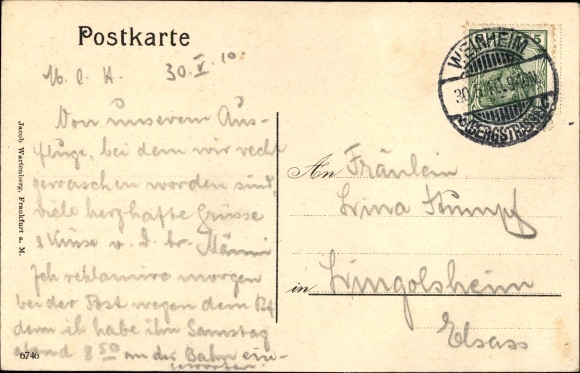 Postkarte
M. l. H. 30. V. 10.
Von unserem Aus-
fluge, bei dem wir recht
gewaschen worden sind,
viele herzhafte Grüsse
& Küsse v. D. br. Männi
Ich reklamire morgen
bei der Post wegen dem
denn ich habe ihn Samstag
abend 8 50 an der Bahn ein-
geworfen.
Jacob Wartenberg, Frankfurt a. M.
6746
WEINHEIM
30.5.10. 9-10N
(BERGSTRASSE)
5
An Fräulein
Lina Stumpf
in Lingolsheim
Elsass